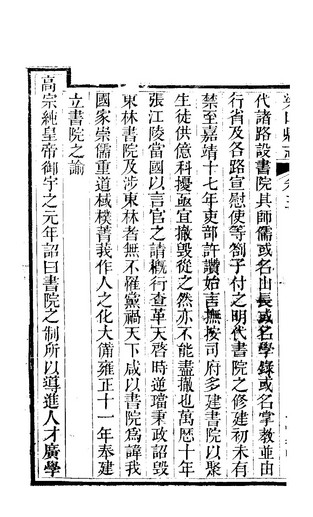 代諸路設書院其師儒或名山長或名學錄或名掌教並由
行省及各路宣慰使等劄子付之明代書院之修建初未有
禁至嘉靖十七年吏部許讚始言撫按司府多建書院以聚
生徒供億科擾亟宜撤毀從之然亦不能盡撤也萬厯十年
張江陵當國以言官之請概行查革天啓時逆璫秉政詔毀
東林書院及涉東林者無不罹黨禍天下咸以書院為諱我
國家崇儒重道棫樸菁莪作人之化大備雍正十一年奉建
立書院之諭
高宗純皇帝御宇之元年詔曰書院之制所以導進人才廣學